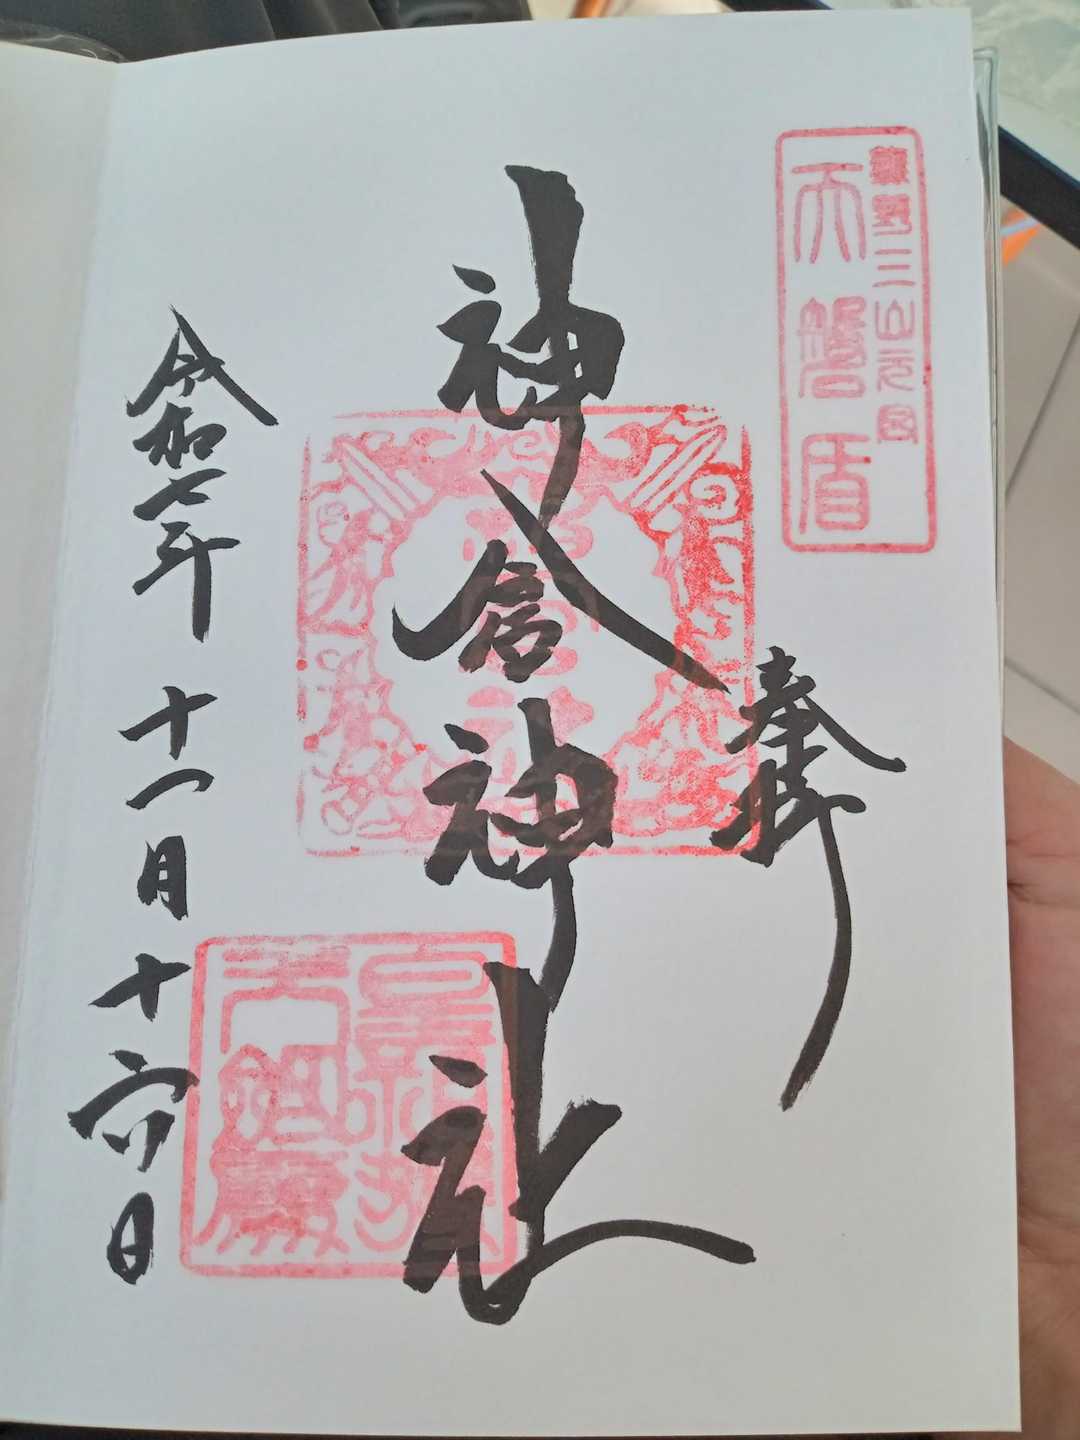 熊野三山元宮
天磐盾
奉拝
神倉神社
令和七年十一月十六日